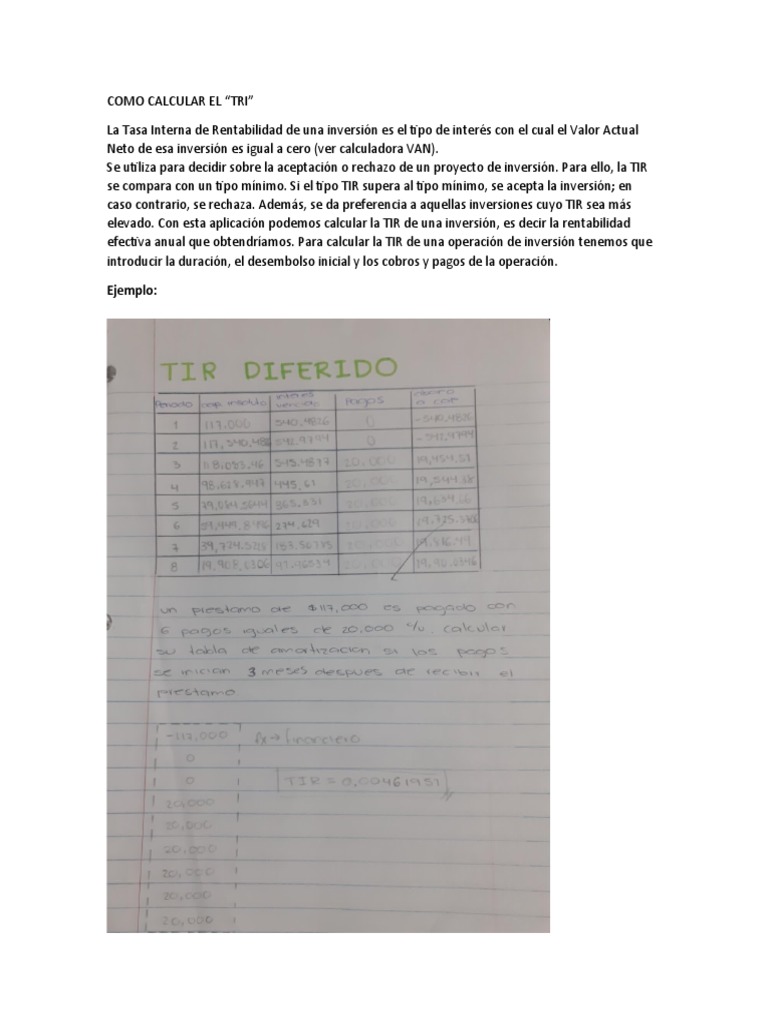 COMO CALCULAR EL “TRI”
La Tasa Interna de Rentabilidad de una inversión es el tipo de interés con el cual el Valor Actual
Neto de esa inversión es igual a cero (ver calculadora VAN).
Se utiliza para decidir sobre la aceptación o rechazo de un proyecto de inversión. Para ello, la TIR
se compara con un tipo mínimo. Si el tipo TIR supera al tipo mínimo, se acepta la inversión; en
caso contrario, se rechaza. Además, se da preferencia a aquellas inversiones cuyo TIR sea más
elevado. Con esta aplicación podemos calcular la TIR de una inversión, es decir la rentabilidad
efectiva anual que obtendríamos. Para calcular la TIR de una operación de inversión tenemos que
introducir la duración, el desembolso inicial y los cobros y pagos de la operación.
Ejemplo:
TIR DIFERIDO
Periodo cap insoluto interes vencido pagos abono a cap
1 117,000 540.4826 0 -540.4826
2 117,540,486 542.9794 0 -542.9794
3 118,083.46 545.4877 20,000 19,454.51
4 98,628.947 445,61 20,000
5 365.831 20,000
6 274,629 20,000 19.725.3706
7 39,724.5215 183.50775 20,000
8 19,908,0306 20,000
un prestamo de $117,000 es pagado con
6 pagos iguales de 20,000 %. calcular
su tabla de amortizacion si los pagos
se inician 3 meses despues de recibir el
prestamo
-117,000 fx→financiero
0
0 TIR = 0,00461951
20,000
20,000
20,000
20,000
20,000
20,000